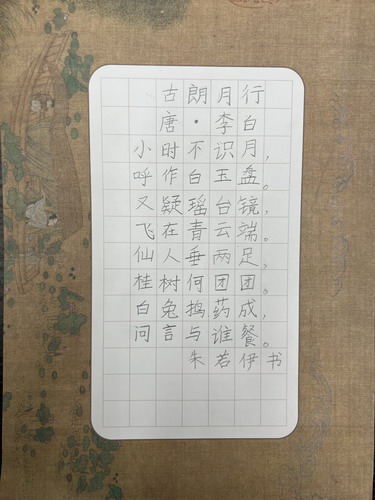 古朗月行
唐·李白
小时不识月，
呼作白玉盘。
又疑瑶台镜，
飞在青云端。
仙人垂两足，
桂树何团团。
白兔捣药成，
问言与谁餐。
朱若伊书